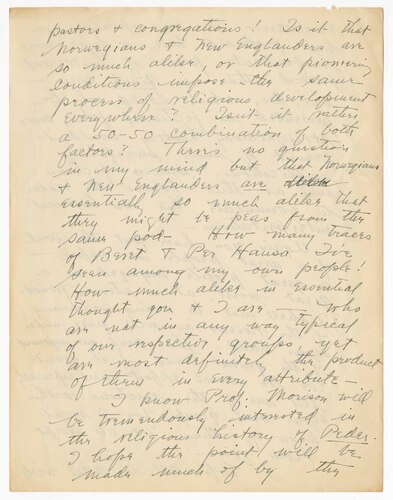 pastors & congregations! Is it that
Norwegians & New Englanders are
so much alike, or that pioneering
conditions impose the same
process of religious development
everywhere? Isn't it rather
a 50-50 combination of both
factors? There's no question
in my mind but that Norwegians
& New Englanders are
essentially so much alike that
they might be peas from the
same pod— How many traces
of Beret & Per Hansa I've
seen among my own people!
How much alike in essential
thought you & I are who
are not in any way typical
of our respective groups, yet
are most definitely the product
of them in every attribute—
I know Prof. Morison will
be tremendously interested in
the religious history of Peder.
I hope the point will be
made much of by the